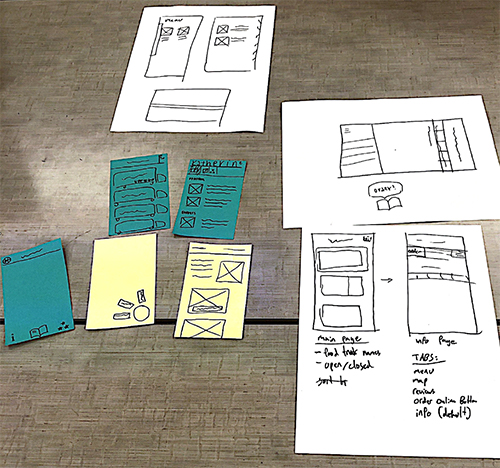 MENU
order!
main page
- food truck names
- open/closed
sort by
info page
TABS:
menu
map
reviews
order online button
info (default)